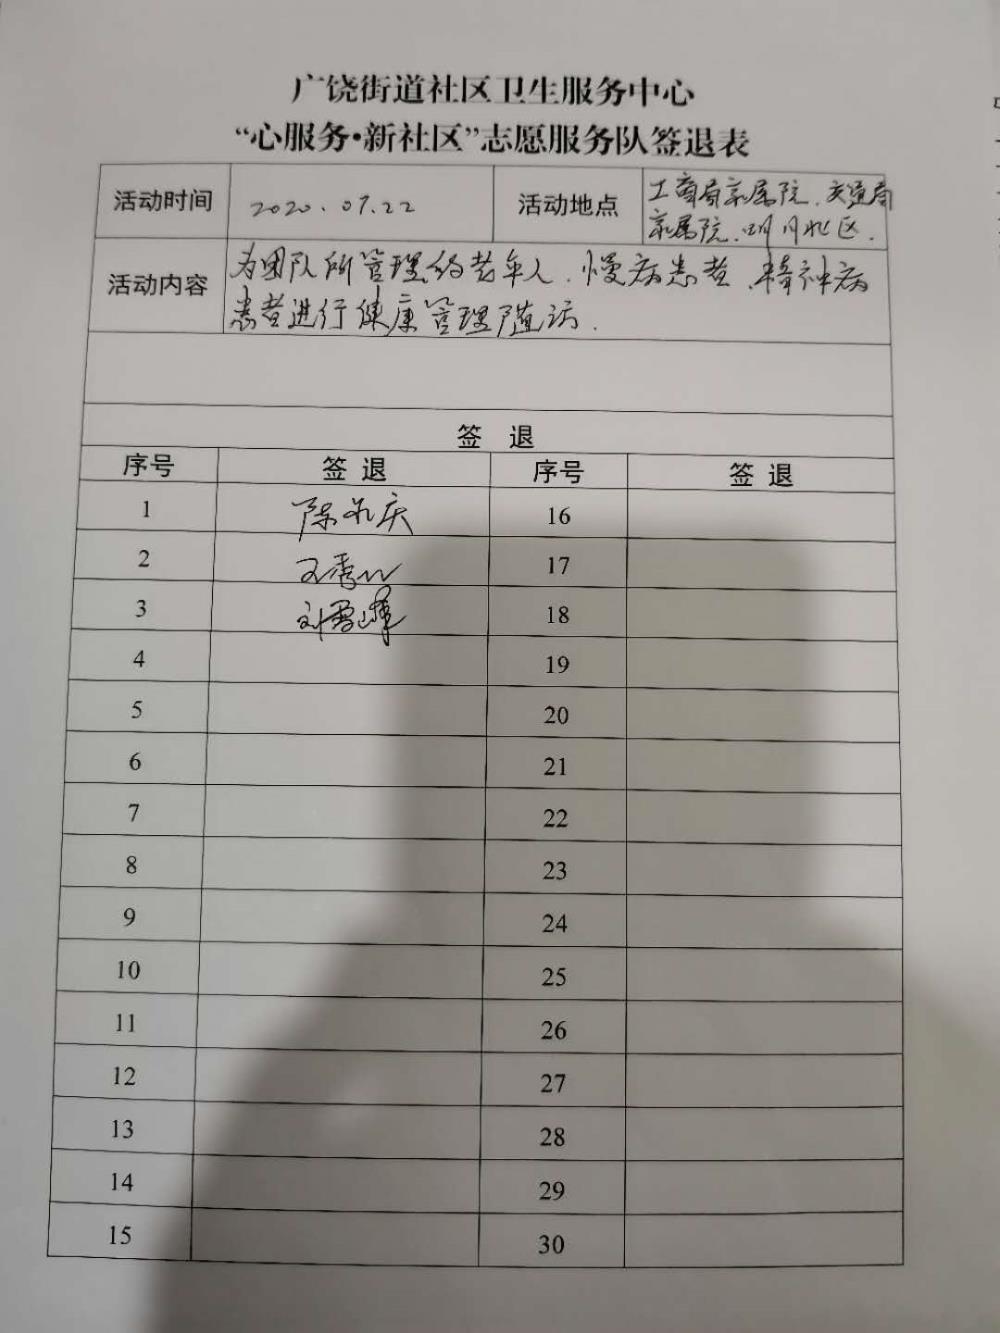 广饶街道社区卫生服务中心
“心服务•新社区”志愿服务队签退表
活动时间 2020.07.22 活动地点 工商局家属院、交通局
家属院、明月北区.
活动内容 为团队所管理的老年人、慢病患者、精神病
患者进行健康管理随访.
签 退
序号 签 退 序号 签 退
1 陈永庆 16
2 王秀 17
3 刘雪峰 18
4 19
5 20
6 21
7 22
8 23
9 24
10 25
11 26
12 27
13 28
14 29
15 30